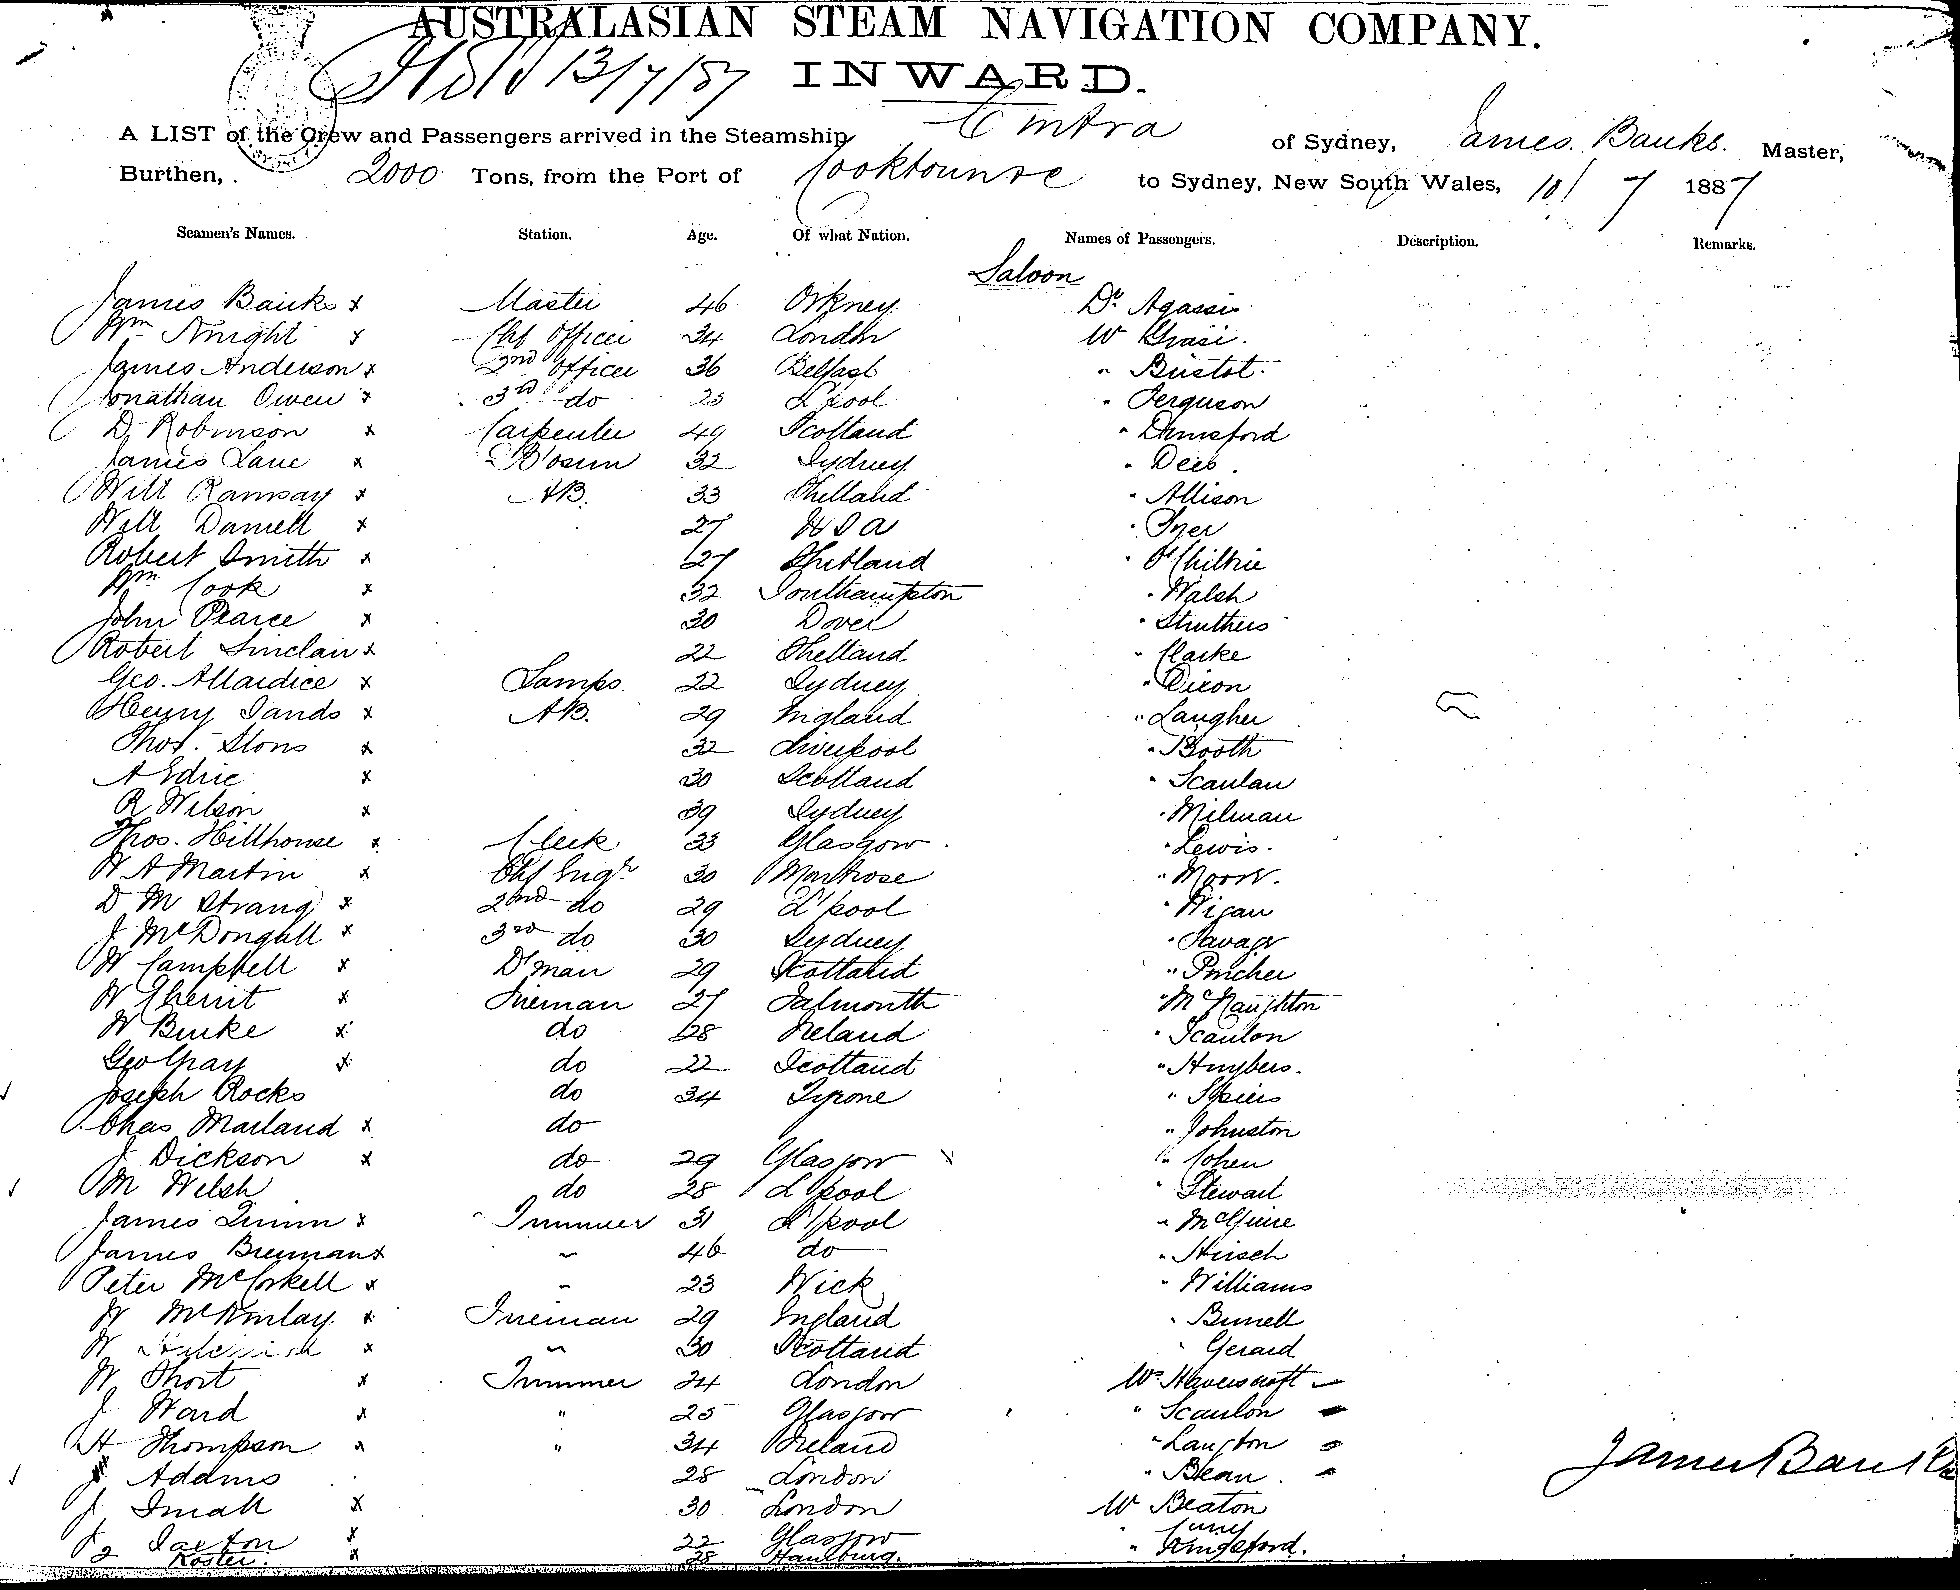 AUSTRALASIAN STEAM NAVIGATION COMPANY.
13/7/87 INWARD.
A LIST of the Crew and Passengers arrived in the Steamship Cintra of Sydney, James Banks. Master,
Burthen, 2000 Tons, from the Port of to Sydney, New South Wales, 10/7 1887
Seamen's Names. Station. Age. Of what Nation. Names of Passengers. Description. Remarks.
Saloon
James Banks x Master 46 Orkney Dr Agassi
Wm Knight x Chf Officer 34 London Mr
James Anderson x 2nd Officer 36 Belfast " Bristol
Jonathan Owen x 3rd do 25 L'pool " Ferguson
D. Robinson x Carpenter 49 Scotland " Dunsford
James Lane x Bosun 32 Sydney " Dees.
Will Ramsay x AB. 33 Shetland " Allison
Will Daniell x 27 USA "
Robert Smith x 27 Shetland " O'Chiltrie
Wm Cook x 32 Southampton " Walsh
John Pearce x 30 Dover " Struthers
Robert Sinclair x 22 Shetland " Clarke
Geo. Allardice x Lamps 22 Sydney " Dixon
Henry Sands x AB. 29 England " Laugher
Thos. Stons x 32 Liverpool " Booth
A Edrie x 30 Scotland " Scanlan
R Wilson x 39 Sydney " Milman
Thos. Hillhouse x Clerk 33 Glasgow " Lewis.
W A Martin x Chf Engr 30 Montrose " Moore.
D M Strang x 2nd do 29 L'pool " Wigan
J McDongall x 3rd do 30 Sydney " Savage
W Campbell x D'man 29 Scotland " Pincher
W Gherrit x Fireman 27 Falmouth " McNaughton
W Burke x do 28 Ireland " Scanlon
Geo Gray x do 22 Scotland " Huybers.
Joseph Rocks do 34 Tyrone " Spiers
Chas Marland x do " Johnston
J Dickson x do 29 Glasgow " Cohen
M Welsh do 28 L'pool " Stewart
James Quinn x Trimmer 31 L'pool " McGuire
James Brennan x " 46 do " Hirsch
Peter McCorkell x " 23 Wick " Williams
W McKinlay x Fireman 29 England " Burnell
W x " 30 Scotland " Gerard
W Short x Trimmer 24 London Mrs Havenscroft
J Ward x " 25 Glasgow " Scanlon
H Thompson x " 34 Ireland " Langton
J Adams 28 London " Bean
James Banks
J Small x 30 London Mr Beaton
J Saxton x 22 Glasgow
Koster. x 28 Hamburg. " Kingsford.